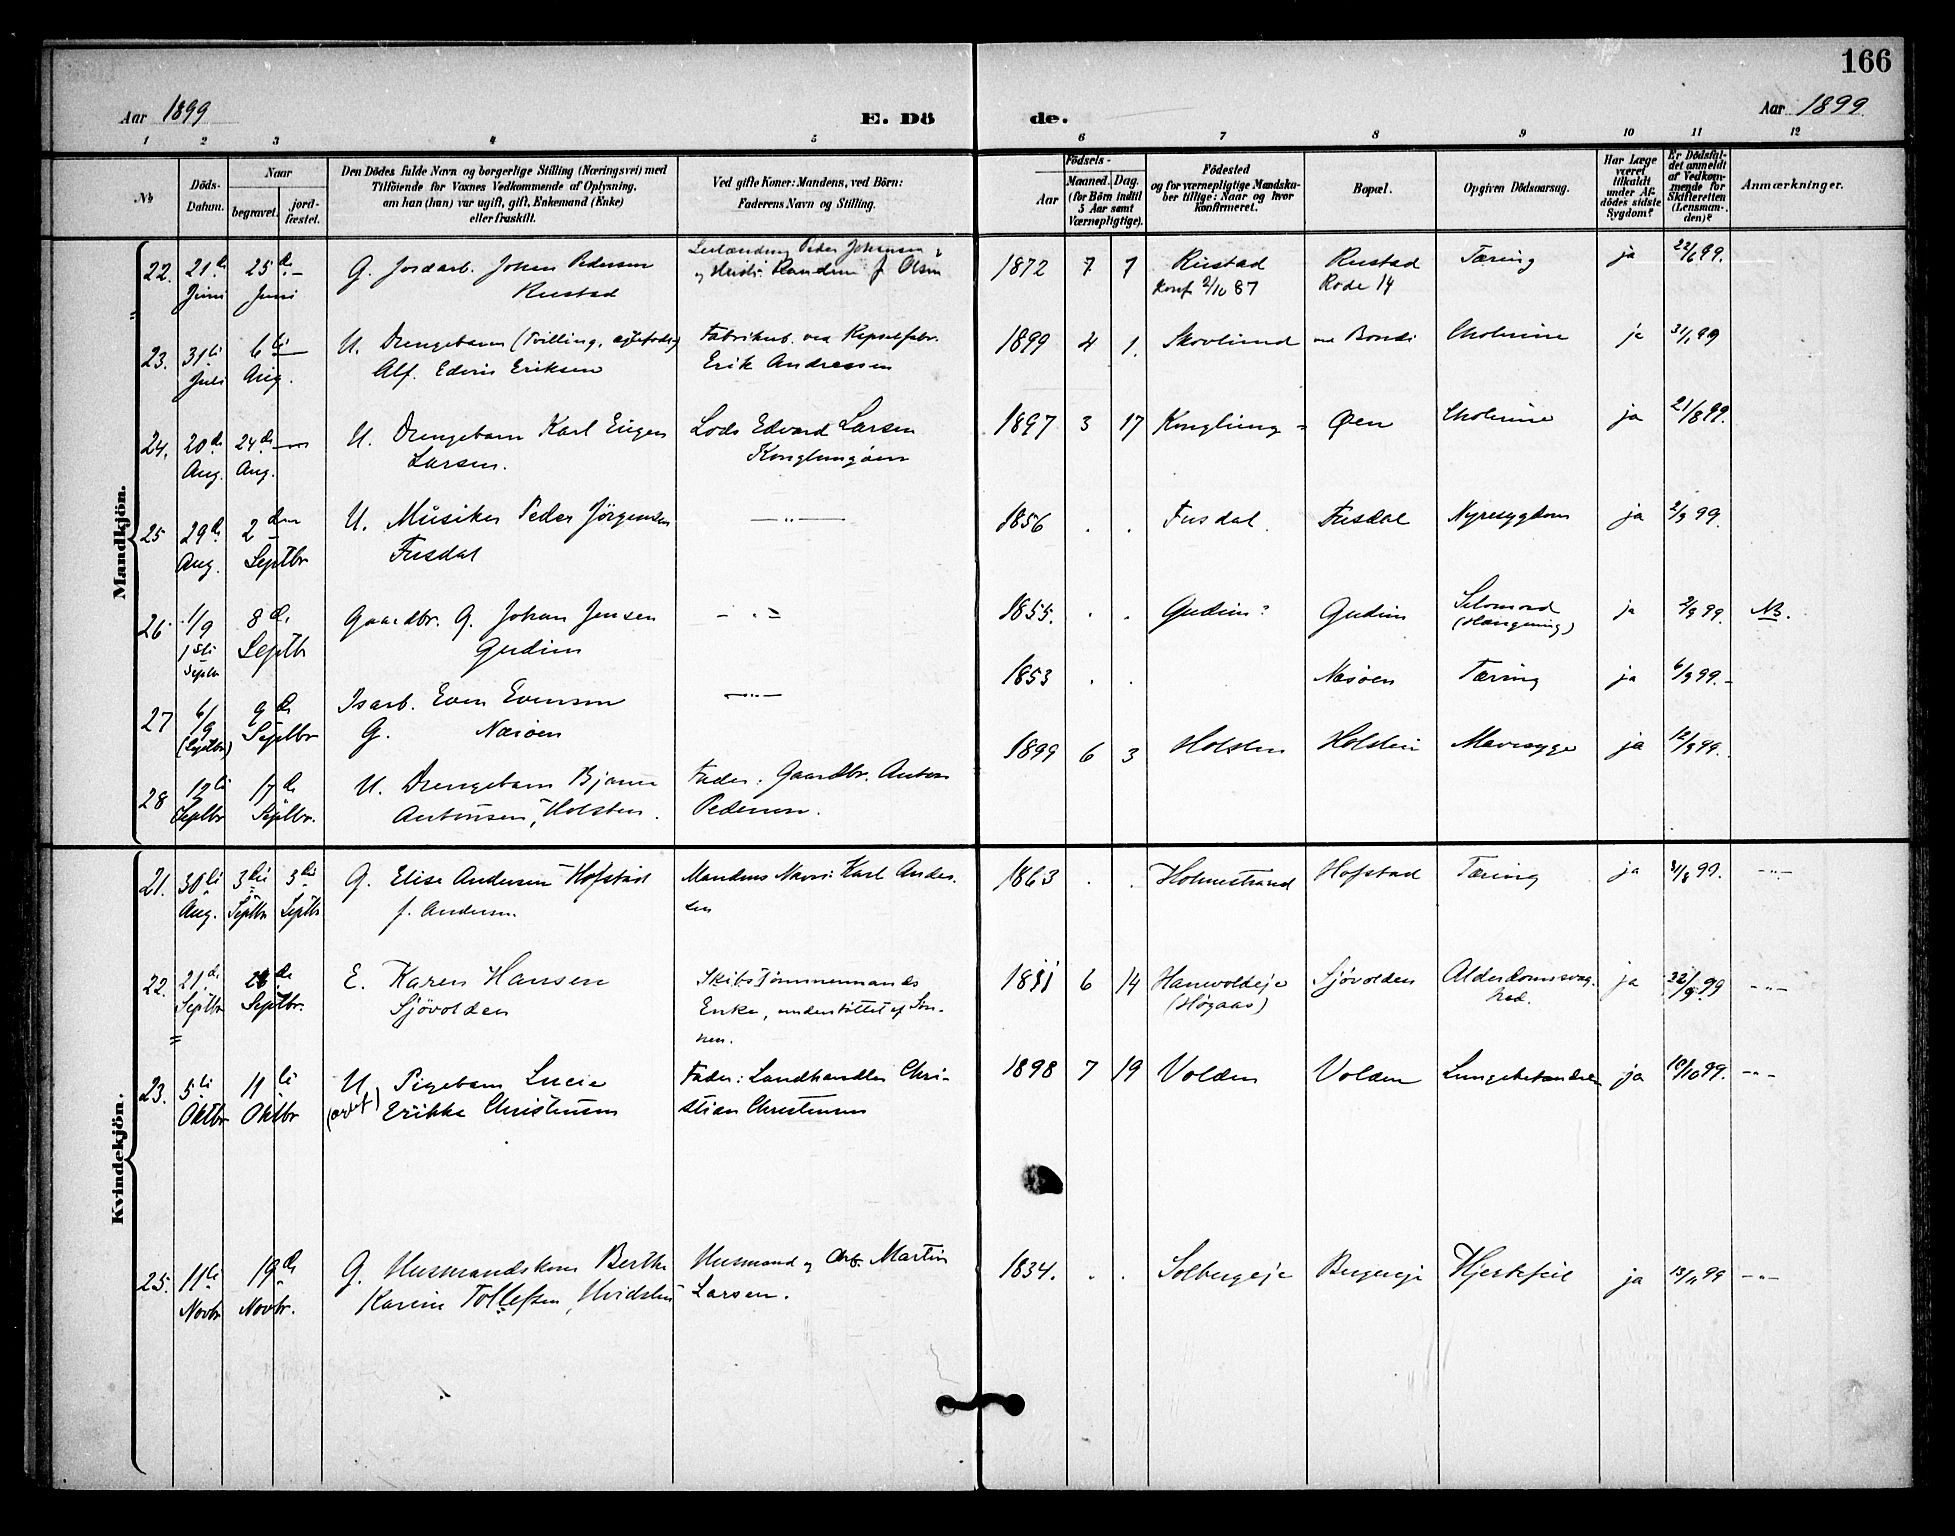 166
Aar 1899
E. Dö
de.
Aar 1899.
1 2 3 4 5 6 7 8 9 10 11 12
No
Döds-
Datum.
Naar
begravet.
jord-
fæstet.
Den Dödes fulde Navn og borgerlige Stilling (Næringsvei) med
Tilföiende for Voxnes Vedkommende af Oplysning,
om han (hun) var ugift, gift, Enkemand (Enke)
eller fraskilt.
Ved gifte Koner: Mandens, ved Börn:
Faderens Navn og Stilling.
Födsels-
Aar
Maaned. Dag.
(for Börn indtil
5 Aar samt
Værnepligtige).
Födested
og for værnepligtige Mandska-
ber tillige: Naar og hvor
konfirmeret.
Bopæl.
Opgiven Dödsaarsag.
Har Læge
været
tilkaldt
under Af-
dödes sidste
Sygdom?
Er Dödsfal-
det anmeldt
af Vedkom-
mende for
Skifteretten
(Lensman-
den)?
Anmærkninger.
Mandkjön.
22. 21. Juni 25 Juni
G. Jordarb. Johan Pedersen
Rustad
Peder Johansen
Olsen
1872 7 7 Rustad
Konf 2/10 87
Rustad
Rode 14
Tæring ja 22/6 99.
23. 31 Juli 6 Aug.
U. Drengebarn (Tvilling,
Alf. Edvin Eriksen
Erik Andreasen
1899 4 1. Skovlund Bondi Cholerine ja
24. 20 Aug. 24 Aug.
U. Drengebarn Karl Eugen
Larsen.
Lods Edvard Larsen
Konglungöen
1897 3 17 Konglung- Øen Cholerine ja 21/8 99.
25 29 Aug. 2 Septbr
U. Musiker Peder Jörgensen
Fusdal
—"—
1856 . . Fusdal. Fusdal Nyresygdom ja 2/9 99.
26 1/9 1sti Septbr 8 Septbr
Gaardbr. G. Johan Jensen
Gudim
—"—
1855. . . Gudim? Gudim Selvmord
(Hængning)
ja 2/9 99. NB.
27 6/9 (Septbr) 9 Septbr
Isarb. Even Evensen
G. Næsöen
—"—
1853 . . Næsöen Tæring ja 6/9 99.-
28 12 Septbr 17 Septbr.
U. Drengebarn Bjarne
Antonsen, Holsten.
Fader: Gaardbr. Anton
Pedersen.
1899 6 3 Holsten Holsten Mavesyge ja 12/9 99.
Kvindekjön.
21. 30 Aug. 3 Septbr 3 Septbr
G. Elise Andersen Hofstad
f. Andersen.
Mandens Navn: Karl Ander-
sen
1863 . . Holmestrand Hofstad Tæring ja 31/8 99. —"—
22. 21. Septbr Septbr.
E. Karen Hansen
Sjövolden
Skibstömmermands
Enke, understöttet af Søn-
nen.
6 14 Hanevoldeje
(Høgaas)
Sjövolden Alderdomssvag-
hed.
ja —"—
23. 5 Oktbr 11 Oktbr
U. Pigebarn Lucie
Erikka Christensen
Fader: Landhandler Chri-
stian Christensen
1898 7 19 Volden Volden Lungebetændelse ja 10/10 99. —"—
25. 11 Novbr 19 Novbr.
G. Husmandskone Berthe
Karine Tollefsen,
Husmand og Arb. Martin
Larsen.
1834. . . Solbergeje Hjertefeil ja 13/11 99 —"—